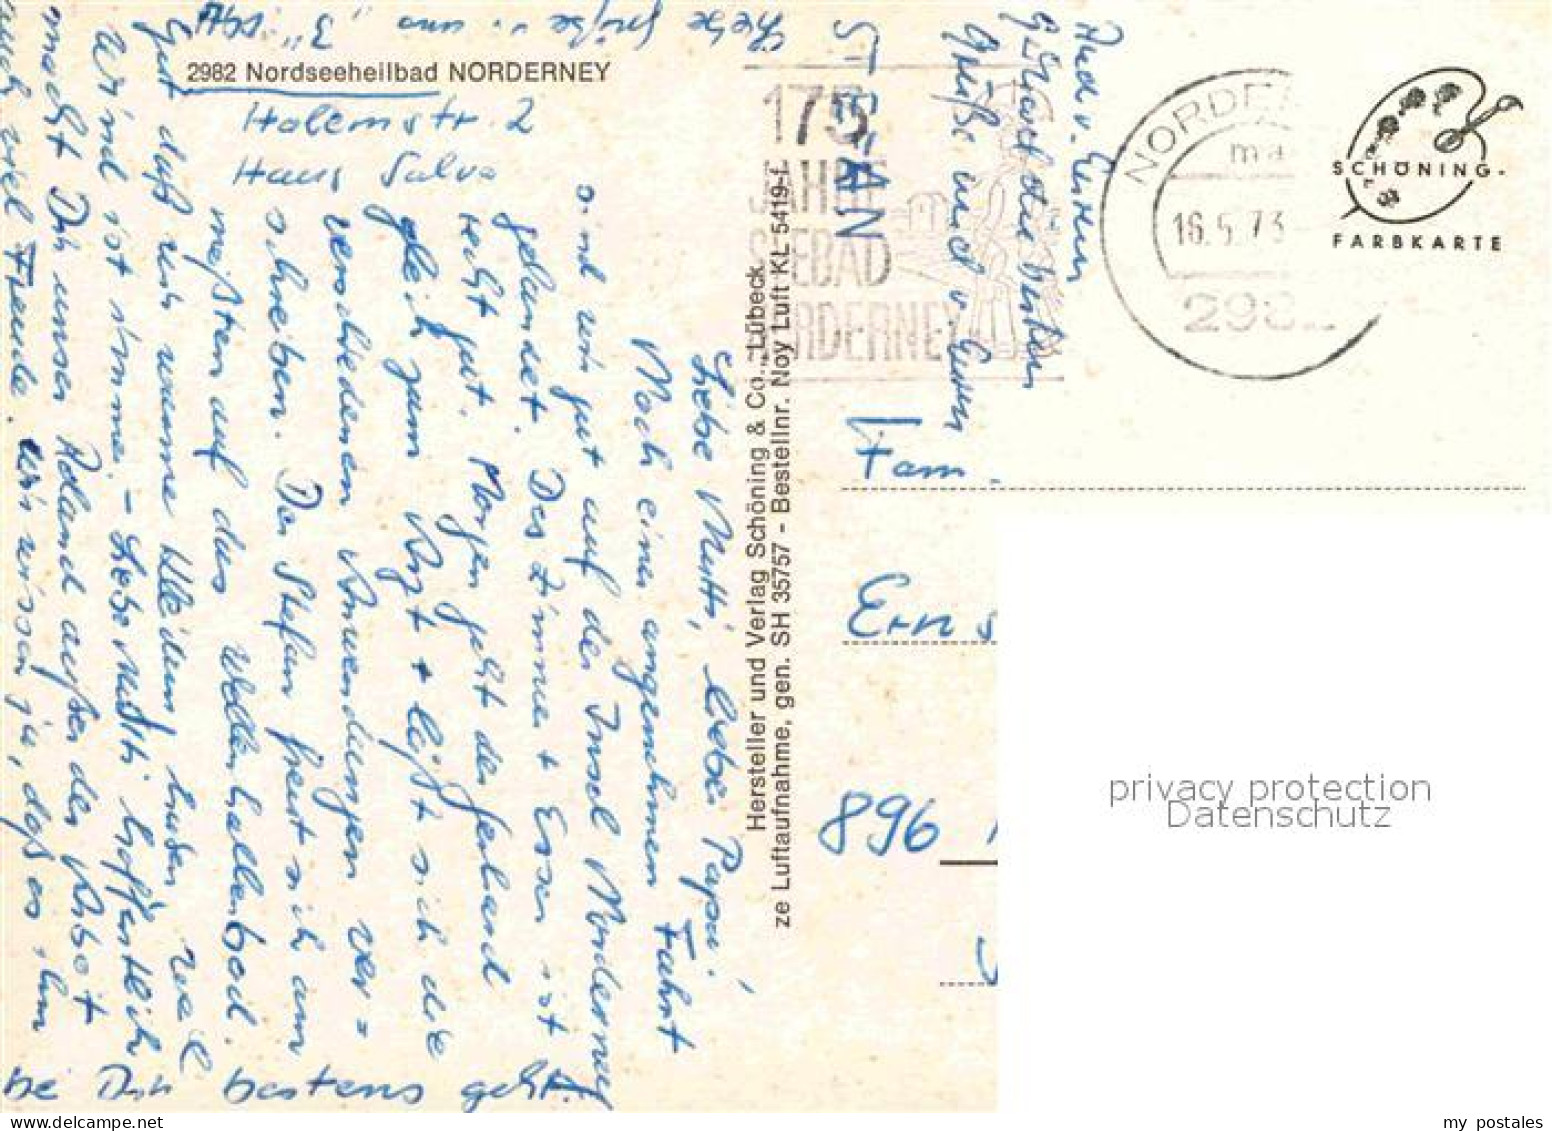 2982 Nordseeheilbad NORDERNEY
Haus Salva
Liebe Mutti, lieber Papa!
Nach einer angenehmen Fahrt
sind wir gut auf der Insel Norderney
gelandet. Das Zimmer + Essen ist
recht gut. Morgen geht der Gerhard
gleich zum Arzt + läßt sich die
verschiedenen Anwendungen ver=
schreiben. Der Stefan freut sich am
meisten auf das Wellenhallenbad.
Gut daß wir warme Kleidung haben, weil
Wind ist immer. – Liebe Mutti hoffentlich
macht Dir unser Roland außer der Arbeit
auch viel Freude. Wir wissen ja, daß es ihm
bei Dir bestens geht.
Liebe Grüße v. uns 3"
STEFAN
Grüße und v. Euren
Auch v. Eurem
Hersteller und Verlag Schöning & Co., Lübeck
ze Luftaufnahme, gen. SH 35757 - Bestellnr. Noy Luft KL 5419-L
175
JAHRE
SEEBAD
NORDERNEY
NORDE
ma
16.5.73
298
SCHÖNING-
FARBKARTE
Fam.
Erns
896
privacy protection
Datenschutz
my postales